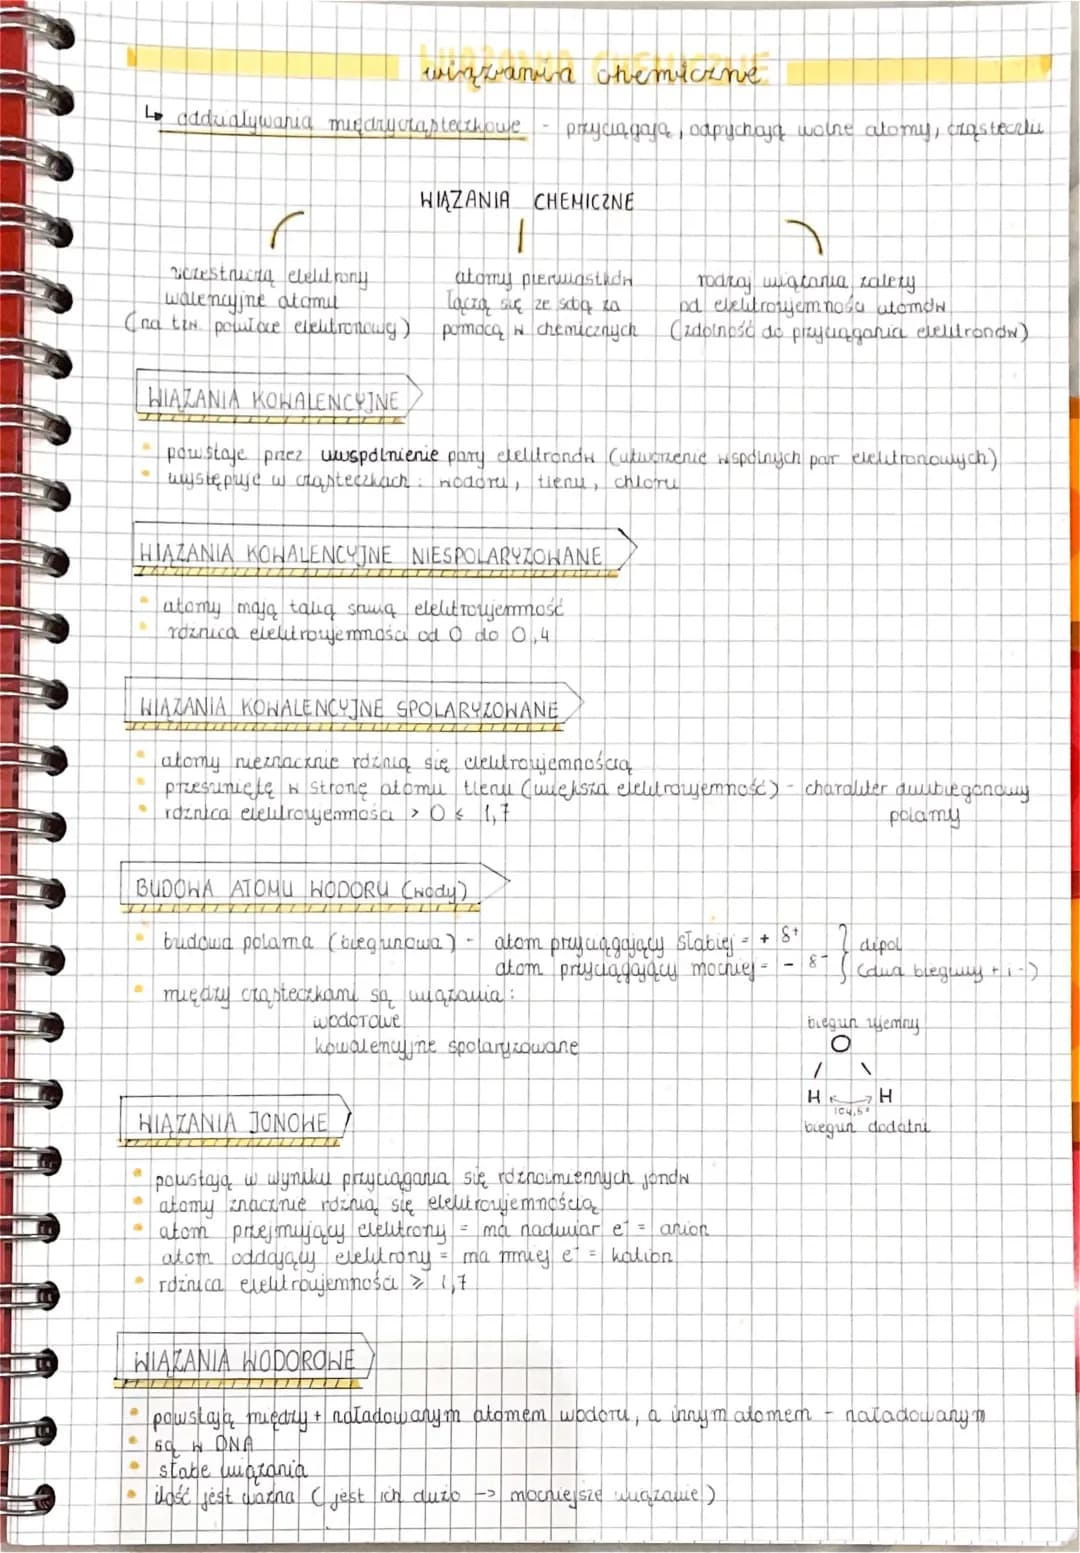 wiązania chemiczne
↳ oddziaływania międzycząsteczkowe - przyciągają, odpychają wolne atomy, cząsteczki
WIĄZANIA CHEMICZNE
uczestniczą elektrony
walencyjne atomu
(na tzw. powłoce elektronowej)
atomy pierwiastków
łączą się ze sobą za
pomocą w chemicznych
rodzaj wiązania zależy
od elektroujemności atomów
(zdolność do przyciągania elektronów)
WIĄZANIA KOWALENCYJNE
• powstaje przez uwspólnienie pary elektronów (utworzenie wspólnych par elektronowych)
• występuje w cząsteczkach: wodoru, tlenu, chloru
WIĄZANIA KOWALENCYJNE NIESPOLARYZOWANE
• atomy mają taką samą elektroujemność
• różnica elektroujemności od 0 do 0,4
WIĄZANIA KOWALENCYJNE SPOLARYZOWANE
• atomy nieznacznie różnią się elektroujemnością
• przesunięte w stronę atomu tlenu (większa elektroujemność) - charakter dwubiegunowy
polarny
• różnica elektroujemności > 0 ≤ 1,7
BUDOWA ATOMU WODORU (wody)
• budowa polarna (biegunowa) - atom przyciągający słabiej = + δ⁺
atom przyciągający mocniej = - δ⁻
} dipol
(dwa bieguny + i -)
• między cząsteczkami są wiązania:
wodorowe
kowalencyjne spolaryzowane
biegun ujemny
O
/ \
H H
104,5°
biegun dodatni
WIĄZANIA JONOWE
• powstają w wyniku przyciągania się różnoimiennych jonów
• atomy znacznie różnią się elektroujemnością
• atom przejmujący elektrony = ma nadmiar e⁻ = anion
atom oddający elektrony = ma mniej e⁻ = kation
• różnica elektroujemności ≥ 1,7
WIĄZANIA WODOROWE
• powstają między + naładowanym atomem wodoru, a innym atomem - naładowanym
• są w DNA
• słabe wiązania
• ilość jest ważna (jest ich dużo -> mocniejsze wiązanie)